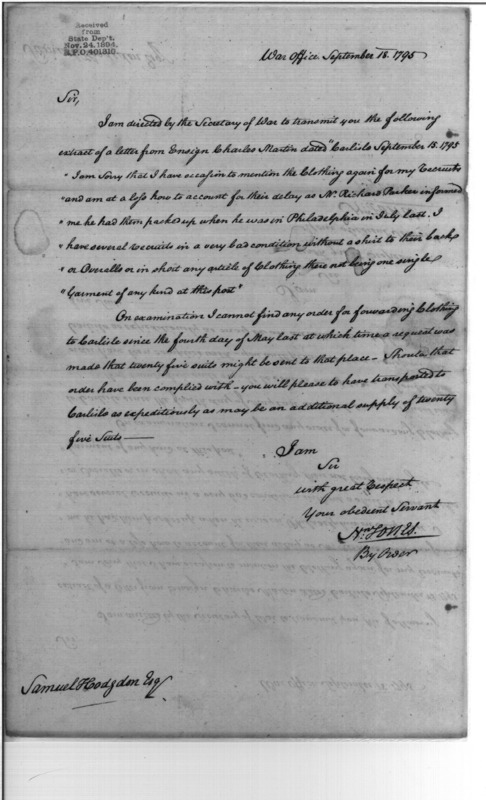 Received
from
State Dep't.
Nov. 24, 1894,
R.P.O. 401310.
War Office September 18. 1795
Sir,
I am directed by the Secretary of War to transmit you the following
extract of a letter from Ensign Charles Martin dated "Carlisle September 15. 1795
"I am Sorry that I have occasion to mention the Clothing again for my Recruits
"and am at a loss how to account for their delay as Mr. Richard Parker informed
"me he had them packed up when he was in Philadelphia in July last. I
"have several recruits in a very bad condition without a shirt to their backs
"or Overalls or in short any article of Clothing there not being one single
"Garment of any kind at this post"
On examination I cannot find any order for forwarding Clothing
to Carlisle since the fourth day of May last at which time a request was
made that twenty five suits might be sent to that place - Should that
order have been complied with - you will please to have transported to
Carlisle as expeditiously as may be an additional supply of twenty
five Suits
I am
Sir
with great Respect
Your obedient Servant
Nn. JONES.
By Order
Samuel Hodgdon Esq